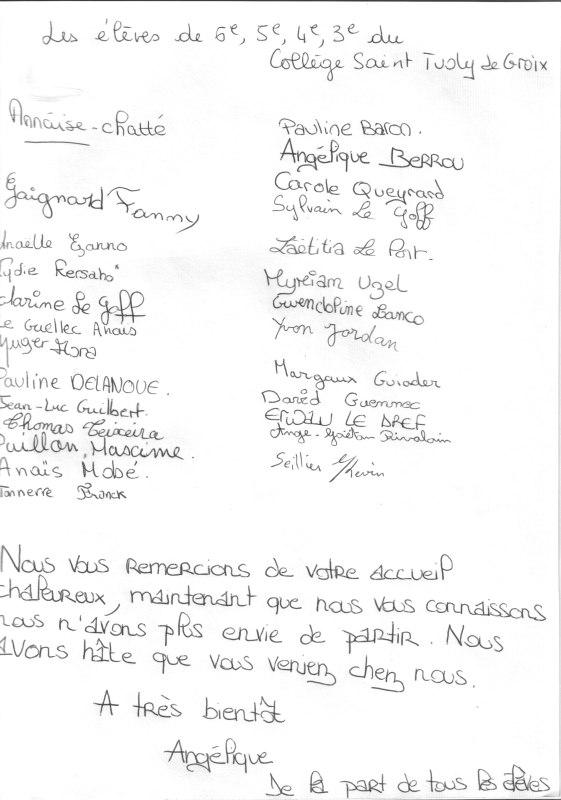 Les élèves de 6e, 5e, 4e, 3e du
Collège Saint Tudy de Groix
Annaïse-chatté
Gaignard Fanny
Ezanno
Lydie Kersaho
Clarime Le Goff
Le Guellec Anaïs
Yuger Flora
Pauline DELANOUE.
Jean-Luc Guilbert.
Thomas Teixeira
Puillon, Maxime.
Anaïs Mobé.
Tonnerre Franck
Pauline Baron.
Angélique BERROU
Carole Queyrard
Sylvain Le Goff
Laëtitia Le Port.
Myreiam Uzel
Gwendoline Lanco
Yvon Jordan
Margaux Guiader
David Guemmec
ERWAN LE DREF
Ange-Gaëtan Rivalain
Seillier Kevin
Nous vous REMERCIONS de votre ACCUEIL
chaleureux, maintenant que nous vous connaissons
nous n'avons plus envie de partir. Nous
avons hâte que vous veniez chez nous.
A très bientôt
Angélique
De la part de tous les élèves